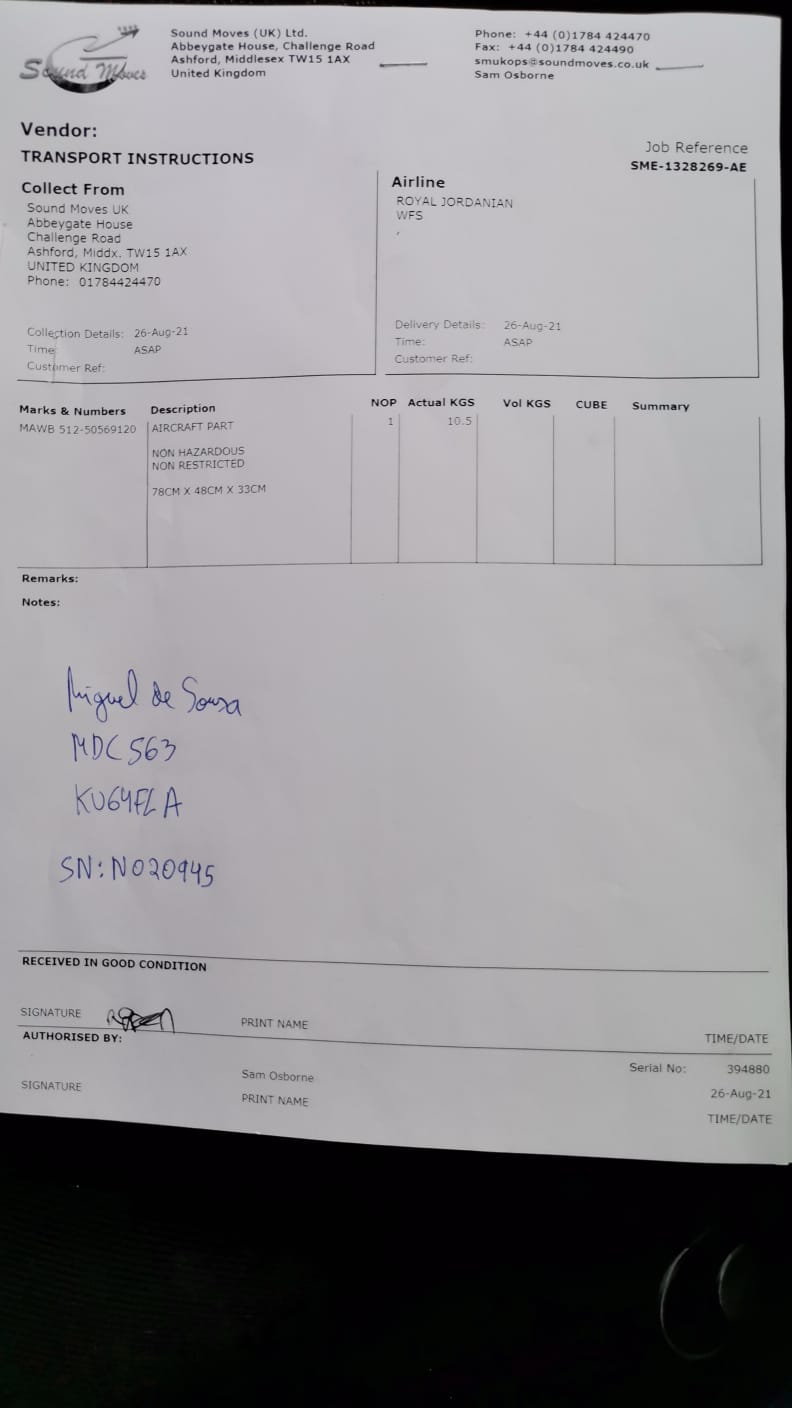 Sound Moves
Sound Moves (UK) Ltd.
Abbeygate House, Challenge Road
Ashford, Middlesex TW15 1AX
United Kingdom
Phone: +44 (0)1784 424470
Fax: +44 (0)1784 424490
smukops@soundmoves.co.uk
Sam Osborne
Vendor:
TRANSPORT INSTRUCTIONS
Job Reference
SME-1328269-AE
Collect From
Sound Moves UK
Abbeygate House
Challenge Road
Ashford, Middx. TW15 1AX
UNITED KINGDOM
Phone: 01784424470
Collection Details: 26-Aug-21
Time: ASAP
Customer Ref:
Airline
ROYAL JORDANIAN
WFS
,
Delivery Details: 26-Aug-21
Time: ASAP
Customer Ref:
Marks & Numbers Description NOP Actual KGS Vol KGS CUBE Summary
MAWB 512-50569120 AIRCRAFT PART 1 10.5
NON HAZARDOUS
NON RESTRICTED
78CM X 48CM X 33CM
Remarks:
Notes:
Miguel de Sousa
MDC563
KU64FLA
SN:N020945
RECEIVED IN GOOD CONDITION
SIGNATURE PRINT NAME TIME/DATE
AUTHORISED BY:
Serial No: 394880
Sam Osborne 26-Aug-21
SIGNATURE PRINT NAME TIME/DATE